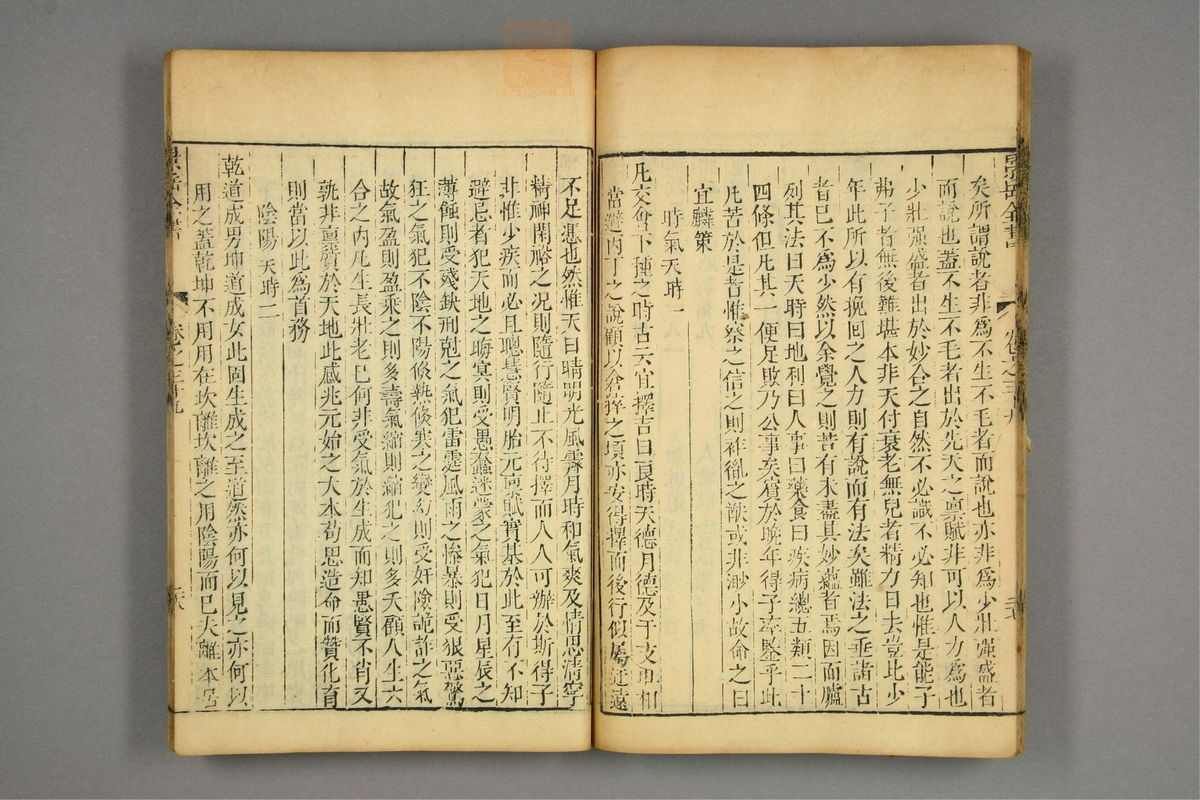 景岳全書
卷之三十九
矣所謂說者非為不生不毛者而說也亦非為少壯强盛者
而說也蓋不生不毛者出於先天之禀賦非可以人力為也
少壯强盛者出於妙合之自然不必識不必知也惟是能子
弗子者無後難堪本非天付衰老無兒者精力日去豈比少
年此所以有挽回之人力則有說而有法矣雖法之垂諸古
者已不為少然以余覺之則苦有未盡其妙蘊者焉因而臚
列其法曰天時曰地利曰人事曰藥食曰疾病總五類二十
四條但凡其一便足敗乃公事矣實於晚年得子率鑒乎此
凡苦於是者惟察之信之則祚胤之猷或非渺小故命之曰
宜麟策
時氣天時一
凡交會下種之時古云宜擇吉日良時天德月德及干支旺相
當避丙丁之說顧以倉猝之頃亦安得擇而後行似屬迂遠
不足憑也然惟天日晴明光風霽月時和氣爽及情思清寧
精神閑裕之况則隨行隨止不待擇而人人可辦於斯得子
非惟少疾而必且聰慧賢明胎元禀賦實基於此至有不知
避忌者犯天地之晦冥則受愚蠢迷蒙之氣犯日月星辰之
薄蝕則受殘缺刑尅之氣犯雷霆風雨之慘暴則受狠惡驚
狂之氣犯不陰不陽倏熱倏寒之變幻則受奸險詭詐之氣
故氣盈則盈乘之則多壽氣縮則縮犯之則多夭顧人生六
合之內凡生長壯老已何非受氣於生成而知愚賢不肖又
孰非禀質於天地此感兆元始之大本苟思造命而贊化育
則當以此為首務
陰陽 天時二
乾道成男坤道成女此固生成之至道然亦何以見之亦何以
用之蓋乾坤不用用在坎離坎離之用陰陽而已夫離本
景岳全書
卷之三十九